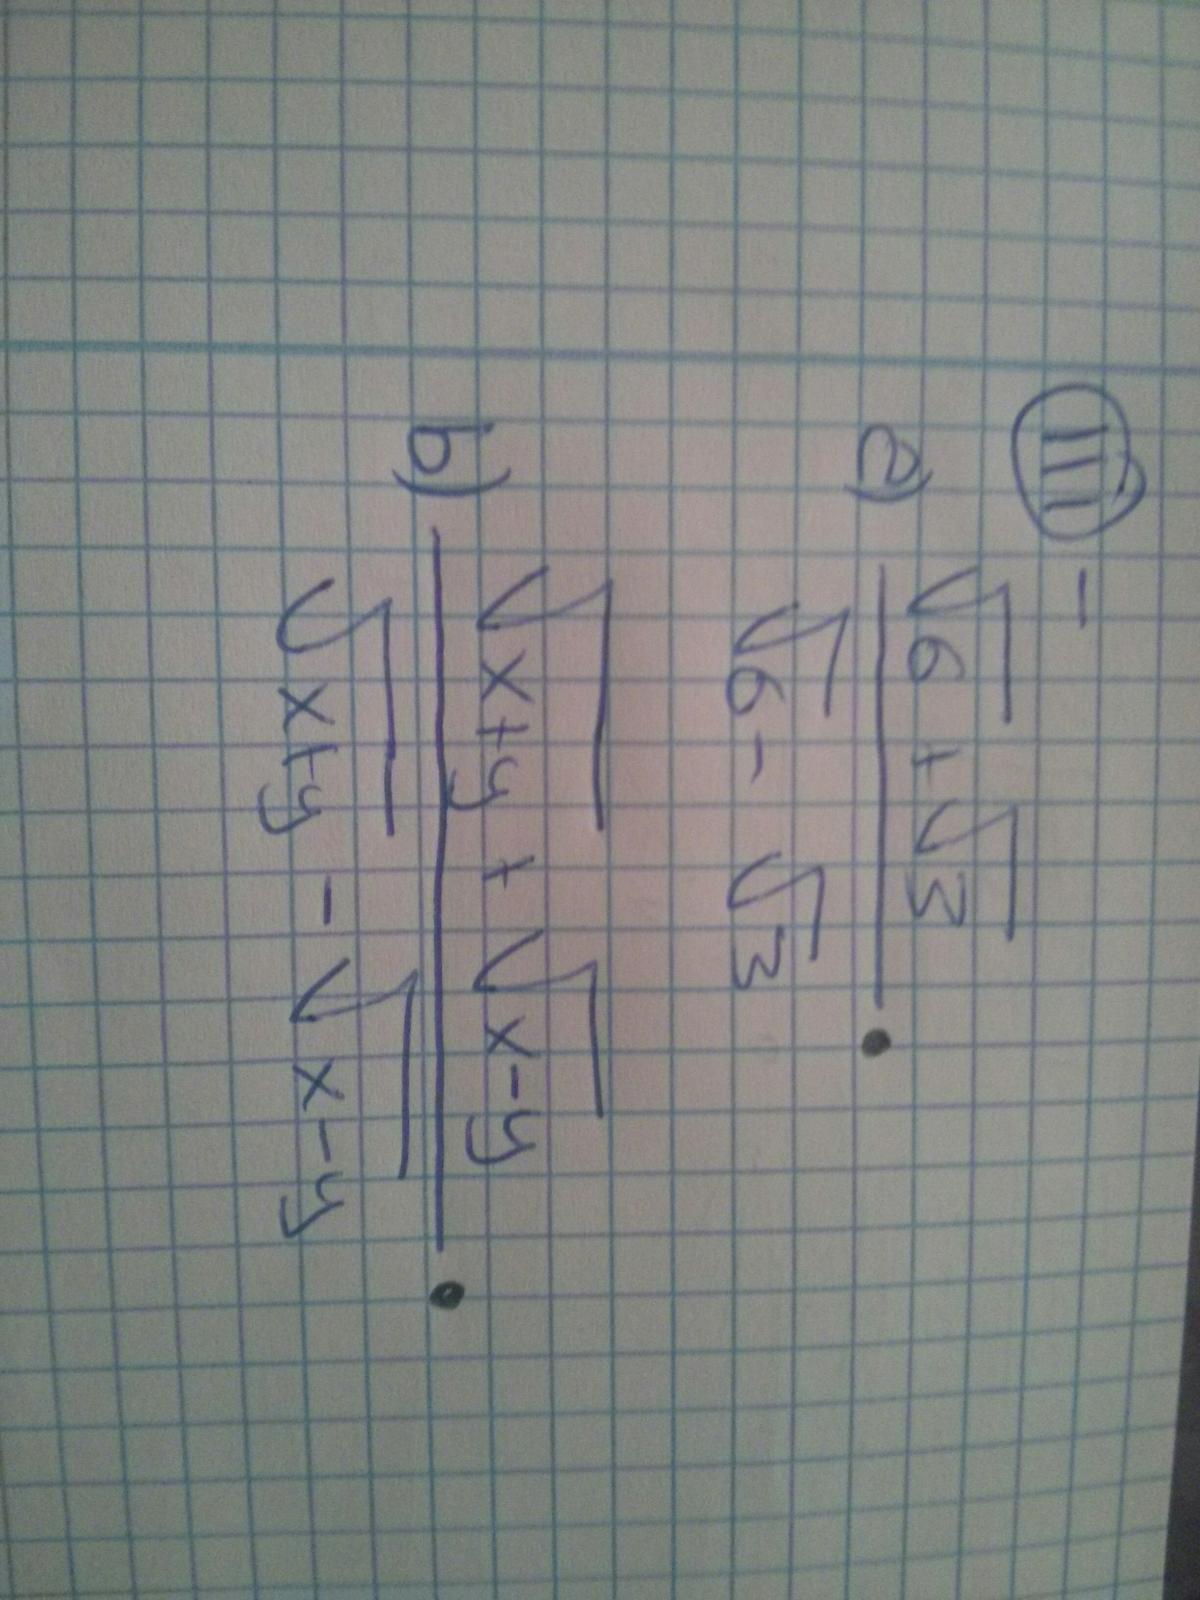 III -
a) √6 + √3
√6 - √3
b) √x+y + √x-y
√x+y - √x-y